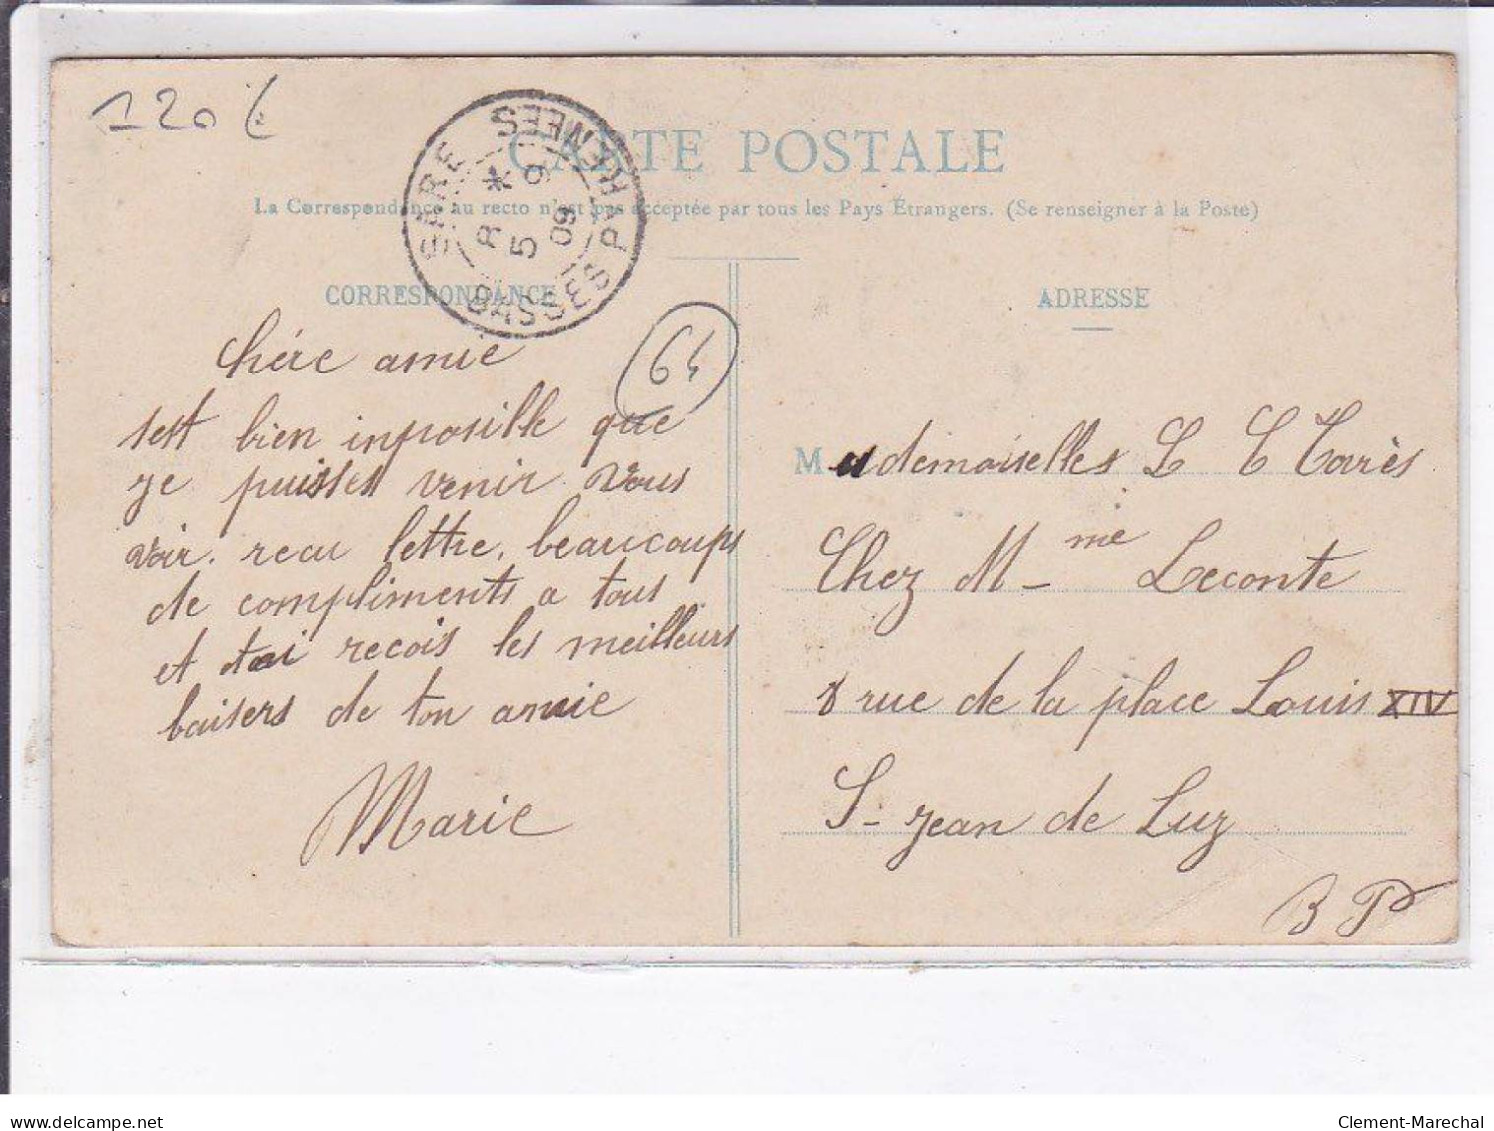 120 €
CARTE POSTALE
La Correspondance au recto n'est pas acceptée par tous les Pays Étrangers. (Se renseigner à la Poste)
SARE BASSES PYRENEES
*
5 9
09
CORRESPONDANCE
64
Chére amie
sest bien inposible que
je puisses venir vous
voir. recu lettre. beaucoups
de compliments a tous
et toi recois les meilleurs
baisers de ton amie
Marie
ADRESSE
Mademoiselles L C Torès
Chez Mme Leconte
8 rue de la place Louis XIV
St jean de Luz
B P
delcampe.net
Clement-Marechal